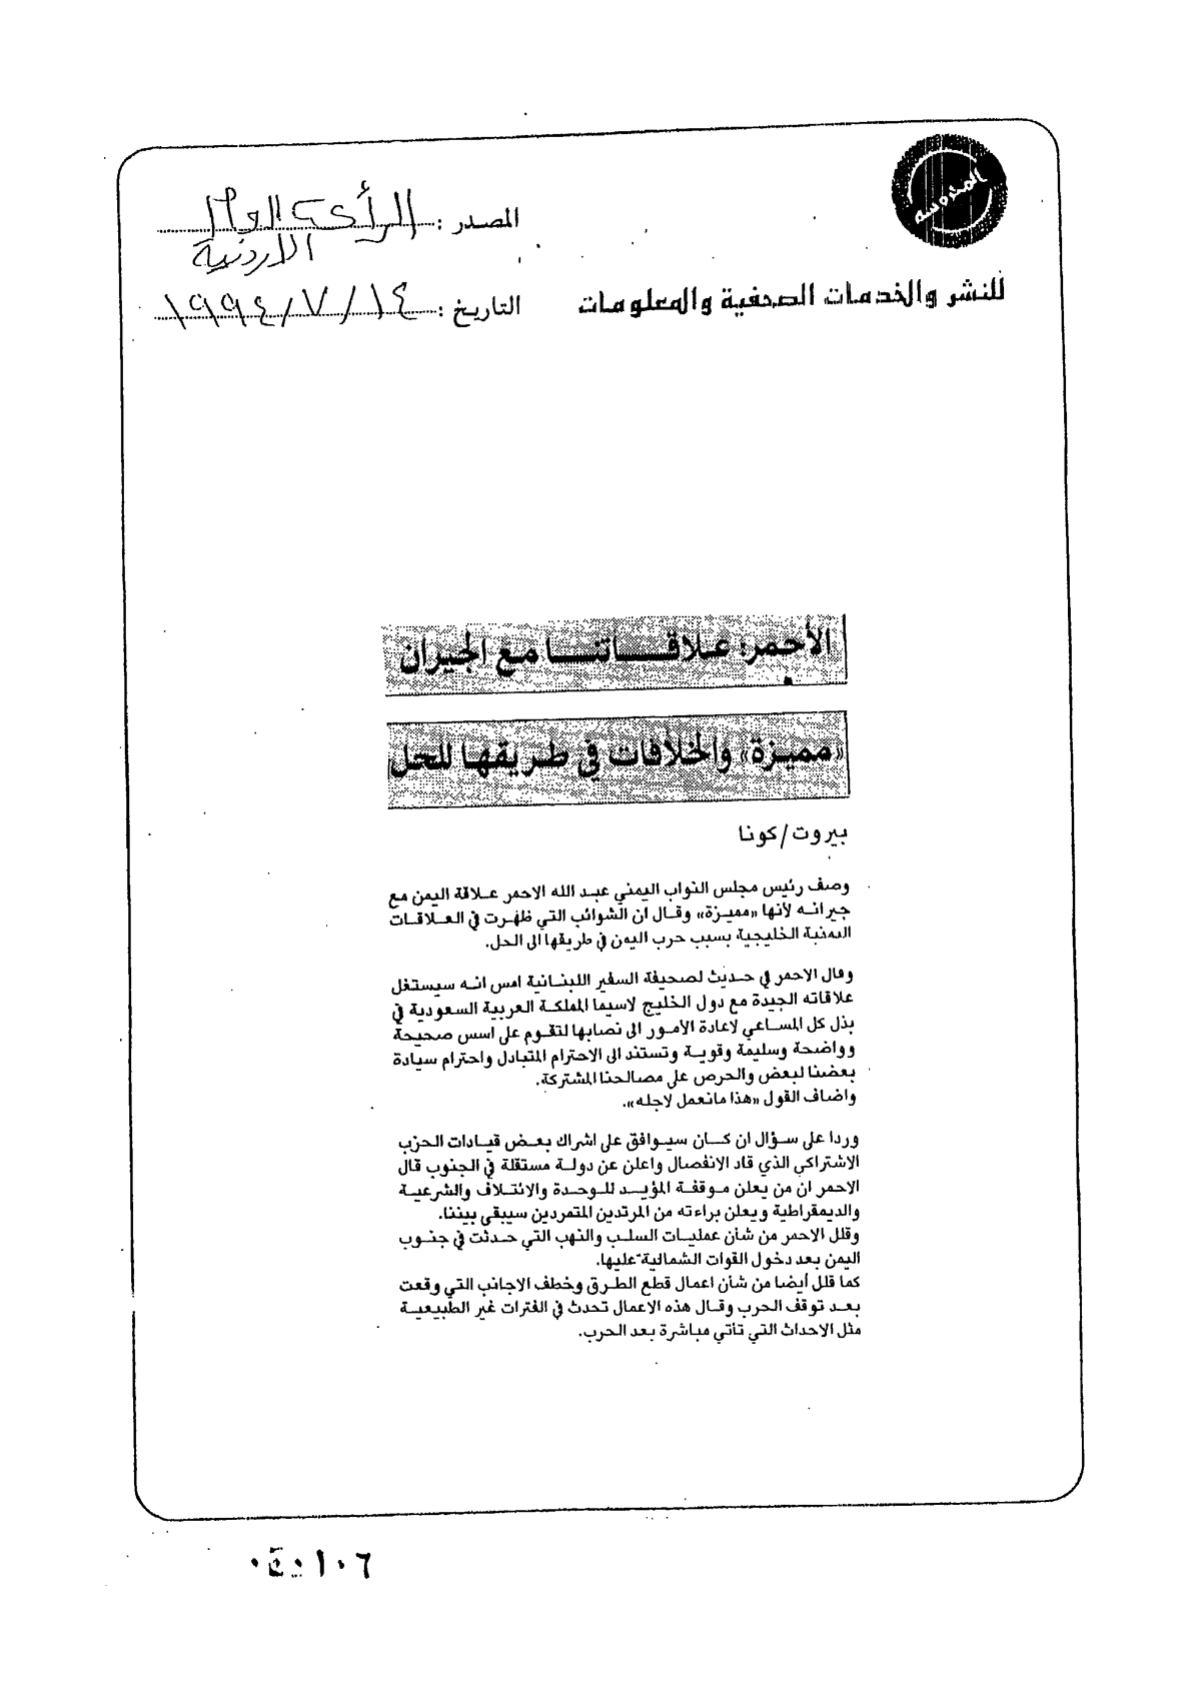 المحروسة
للنشر والخدمات الصحفية والمعلومات
المصدر : الرأي العام
الاردنية
التاريخ : ١٤ / ٧ / ١٩٩٤
الأحمر: علاقـــاتنـــا مع الجيران
«مميزة» والخلافات في طريقها للحل
بيروت/كونا
وصف رئيس مجلس النواب اليمني عبد الله الاحمر علاقة اليمن مع
جيرانه لأنها «مميزة» وقال ان الشوائب التي ظهرت في العلاقات
اليمنية الخليجية بسبب حرب اليمن في طريقها الى الحل.
وقال الاحمر في حديث لصحيفة السفير اللبنانية امس انه سيستغل
علاقاته الجيدة مع دول الخليج لاسيما المملكة العربية السعودية في
بذل كل المساعي لاعادة الأمور الى نصابها لتقوم على اسس صحيحة
وواضحة وسليمة وقوية وتستند الى الاحترام المتبادل واحترام سيادة
بعضنا لبعض والحرص على مصالحنا المشتركة.
واضاف القول «هذا مانعمل لاجله».
وردا على سؤال ان كان سيوافق على اشراك بعض قيادات الحزب
الاشتراكي الذي قاد الانفصال واعلن عن دولة مستقلة في الجنوب قال
الاحمر ان من يعلن موقفة المؤيد للوحدة والائتلاف والشرعية
والديمقراطية ويعلن براءته من المرتدين المتمردين سيبقى بيننا.
وقلل الاحمر من شأن عمليات السلب والنهب التي حدثت في جنوب
اليمن بعد دخول القوات الشمالية عليها.
كما قلل أيضا من شأن اعمال قطع الطرق وخطف الاجانب التي وقعت
بعد توقف الحرب وقال هذه الاعمال تحدث في الفترات غير الطبيعية
مثل الاحداث التي تأتي مباشرة بعد الحرب.